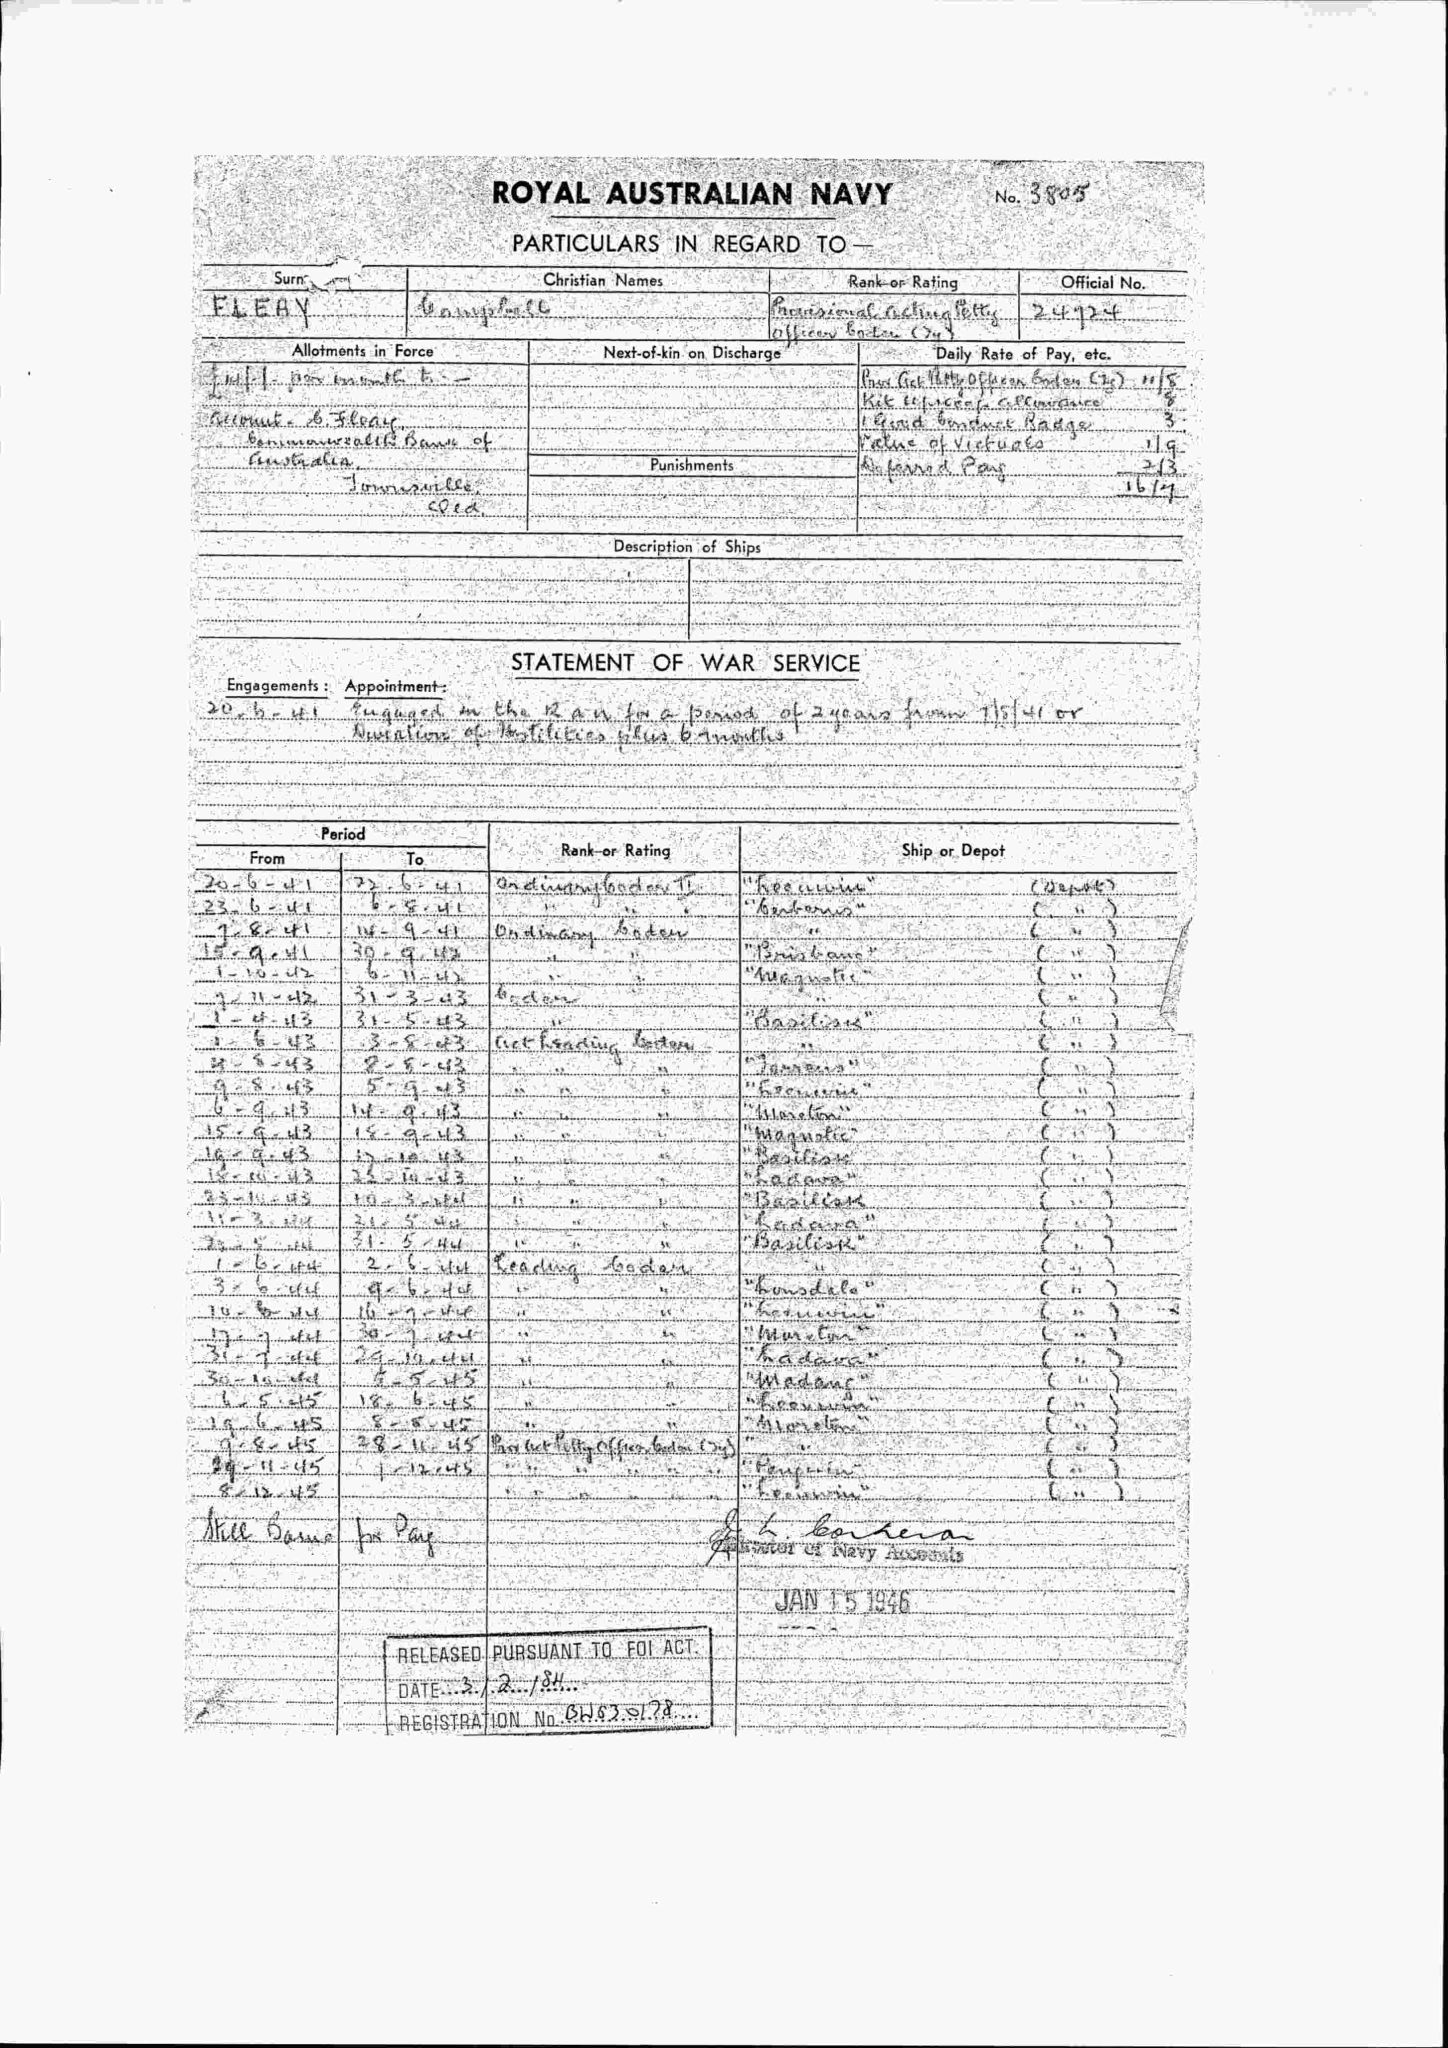 ROYAL AUSTRALIAN NAVY
No. 3805
PARTICULARS IN REGARD TO —
Surn Christian Names Rank or Rating Official No.
FLEAY Campbell Provisional Acting Petty 24724
Officer Coder (Ty)
Allotments in Force Next-of-kin on Discharge Daily Rate of Pay, etc.
per month to — Prov Act Petty Officer Coder (Ty) 11/8
Kit Upkeep allowance 8
Account C. Fleay 1 Good Conduct Badge 3
Commonwealth Bank of Value of Victuals 1/9
Australia, Punishments Deferred Pay 2/3
Townsville, 16/7
Qld.
Description of Ships
STATEMENT OF WAR SERVICE
Engagements: Appointment:
20.6.41 Engaged in the R A N for a period of 2 years from or
Duration of Hostilities plus 6 months
Period
From To Rank or Rating Ship or Depot
20-6-41 22.6-41 Ordinary Coder II "Leeuwin" (Depot)
23.6-41 6-8.41 " " " "Cerberus" ( " )
7-8-41 14-9-41 Ordinary Coder " ( " )
15-9.41 30-9.42 " " "Brisbane" ( " )
1-10-42 6-11-42 " " "Magnetic" ( " )
7-11-42 31-3-43 Coder " ( " )
1-4-43 31-5-43 " "Basilisk" ( " )
1-6-43 3-8-43 Act Leading Coder " ( " )
4-8-43 8-8-43 " " " "Torrens" ( " )
9-8.43 5-9-43 " " " "Leeuwin" ( " )
6-9.43 14-9.43 " " " "Moreton" ( " )
15-9-43 18-9-43 " " " "Magnetic" ( " )
19-9.43 17-10.43 " " " "Basilisk ( " )
18-10-43 22-10-43 " " " "Ladava" ( " )
23-10-43 10-3-44 " " " "Basilisk ( " )
11-3.44 21-5-44 " " " "Ladava" ( " )
22-5-44 31.5-44 " " " "Basilisk" ( " )
1-6-44 2-6-44 Leading Coder " ( " )
3-6-44 9-6-44 " " "Lonsdale" ( " )
10-6-44 16-7-44 " " "Leeuwin" ( " )
17-7-44 30-7-44 " " "Moreton" ( " )
31-7-44 29-10.44 " " "Ladava" ( " )
30-10-44 5-5-45 " " "Madang" ( " )
6-5.45 18.6-45 " " "Leeuwin" ( " )
19.6.45 8-8-45 " " "Moreton" ( " )
9-8-45 28-11-45 Prov Act Petty Officer Coder (Ty) " ( " )
29-11-45 7-12.45 " " " " " "Penguin" ( " )
8-12-45 " " " " " "Leeuwin" ( " )
Still Borne for Pay
L. Corkeron
Director of Navy Accounts
JAN 15 1946
RELEASED PURSUANT TO FOI ACT.
DATE 3/2/84
REGISTRATION No